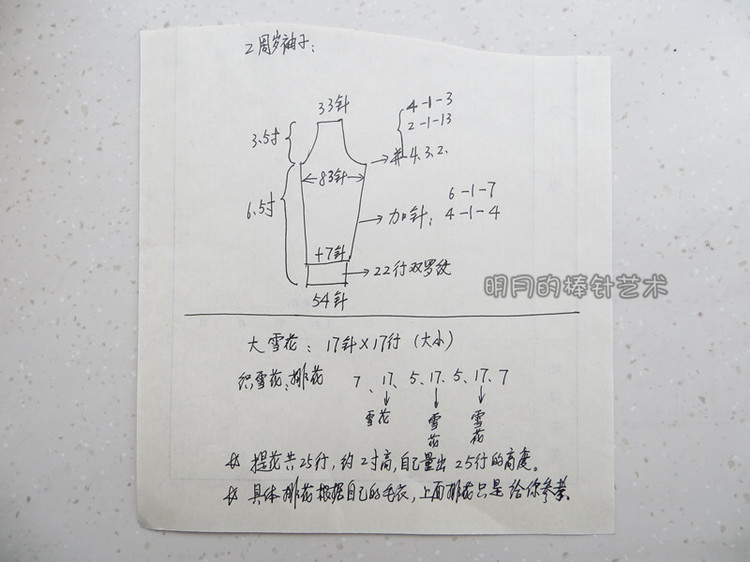 2周岁袖子:
33针
4-1-3
2-1-13
3.5寸
并4.3.2.
83针
6-1-7
6.5寸
加针:
4-1-4
+7针
22行双罗纹
明月的棒针艺术
54针
大雪花: 17针×17行 (大小)
织雪花、排花 7、17、5、17、5、17、7
雪花
雪花
雪花
提花共25行,约2寸高,自己量出25行的高度。
具体排花根据自己的毛衣,上面排花只是给你参考。